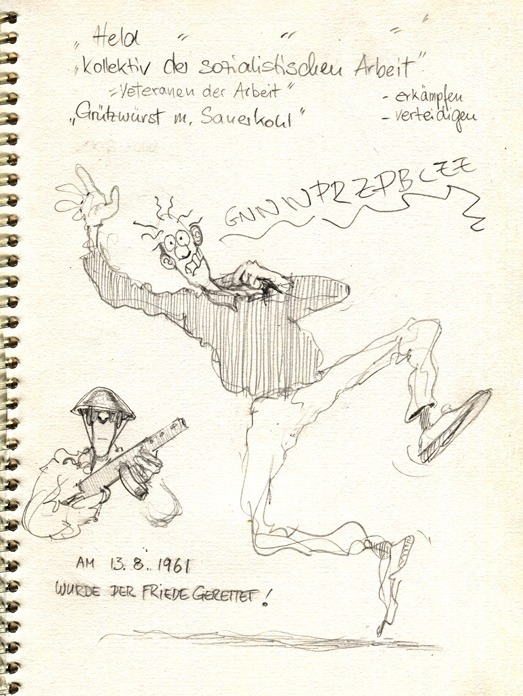 "Held " " "
"Kollektiv der sozialistischen Arbeit"
="Veteranen der Arbeit"
- erkämpfen
"Grützwürst m. Sauerkohl"
- verteidigen
GNNNUPRZPBCZZ
AM 13.8.. 1961
WURDE DER FRIEDE GERETTET!